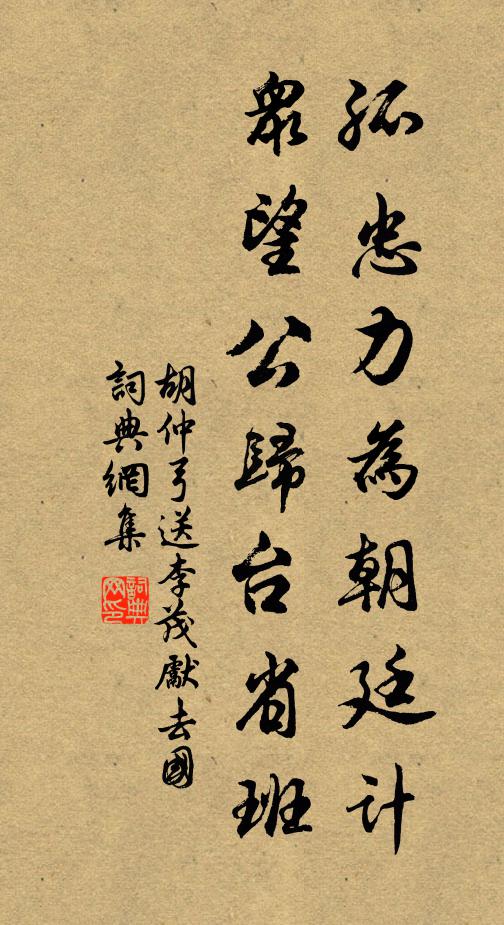 孤忠力為朝廷計
眾望公歸台省班
胡仲弓送李茂獻去國
詞典網集
詞典
网印